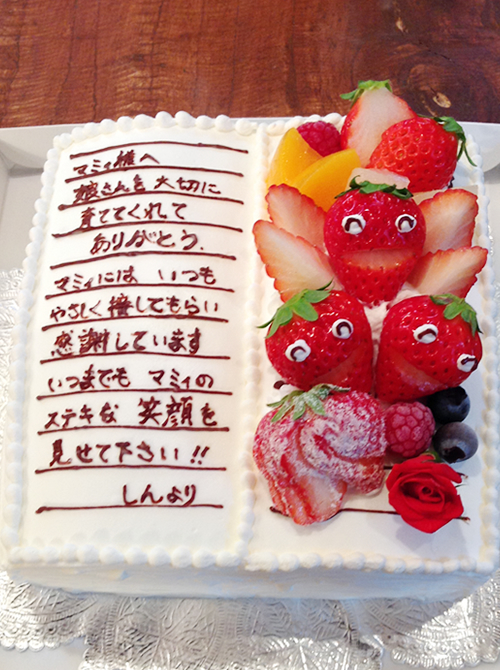 マミィ様へ
娘さんを大切に
育ててくれて
ありがとう.
マミィには いつも
やさしく接してもらい
感謝しています
いつまでも マミィの
ステキな 笑顔を
見せて下さい!!
しんより